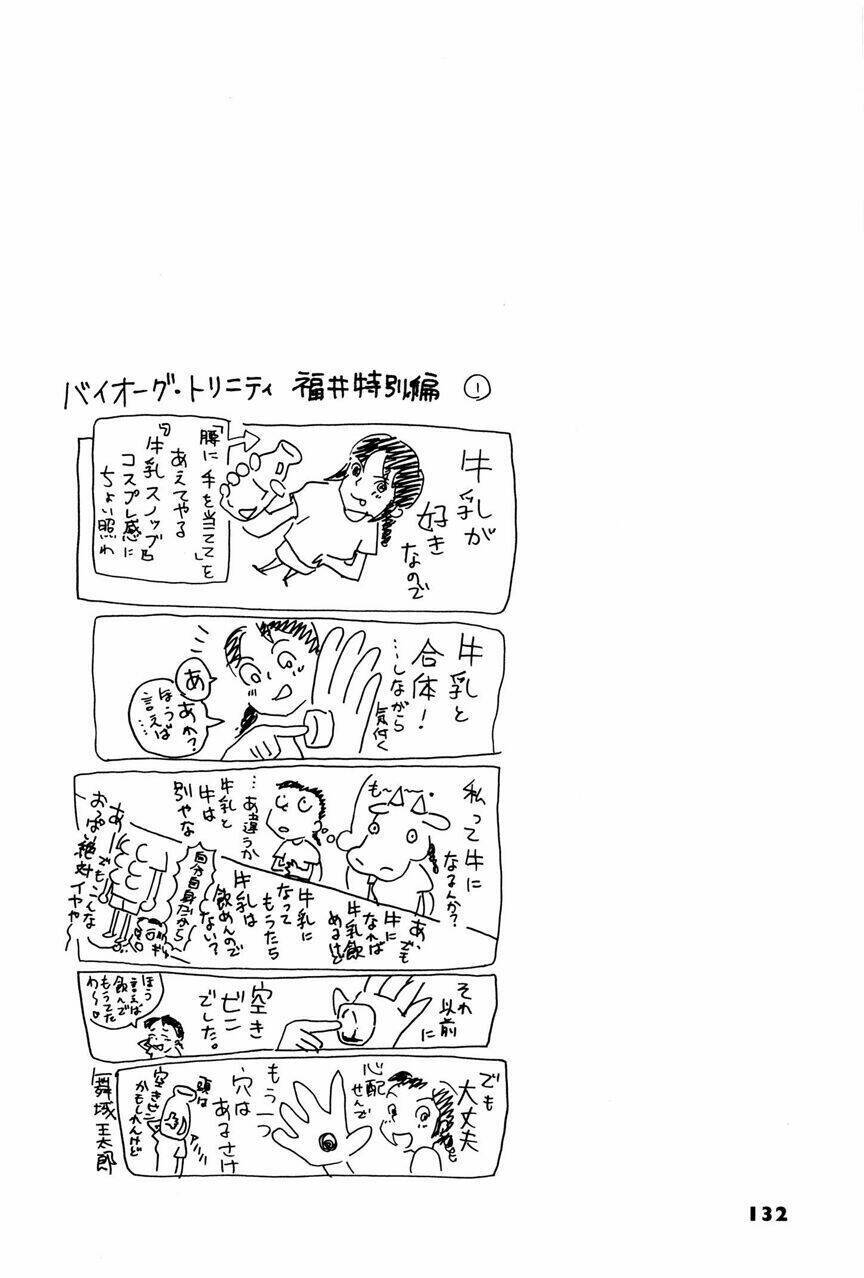 バイオーグ・トリニティ 福井特別編 ①
牛乳が
好き
なので
「腰に手を当てて」を
あえてやる
牛乳スノッブな
コスプレ感に
ちょい照れ
牛乳と
合体!
…しながら
気付く
あ
あれ?
ほうば
言えば…
私って牛に
なるんか?
も〜〜。
…あ違うか
牛乳と
牛は
別やな
あ、でも
牛に
なれば
牛乳飲
めるけど
牛乳に
なって
もうたら
牛乳は
飲めんので
ない?
自分自身だから
あー
でもこんな
おっぱい絶対イヤや
それ
以前
に
空き
ビン
でした。
ほう
言えば
飲んで
もうてた
わ〜♡
でも
大丈夫
心配
せんで
も
もう一つ
穴は
あるさけ
頭は
空きビン
かもしれんけど
舞城王太郎
132